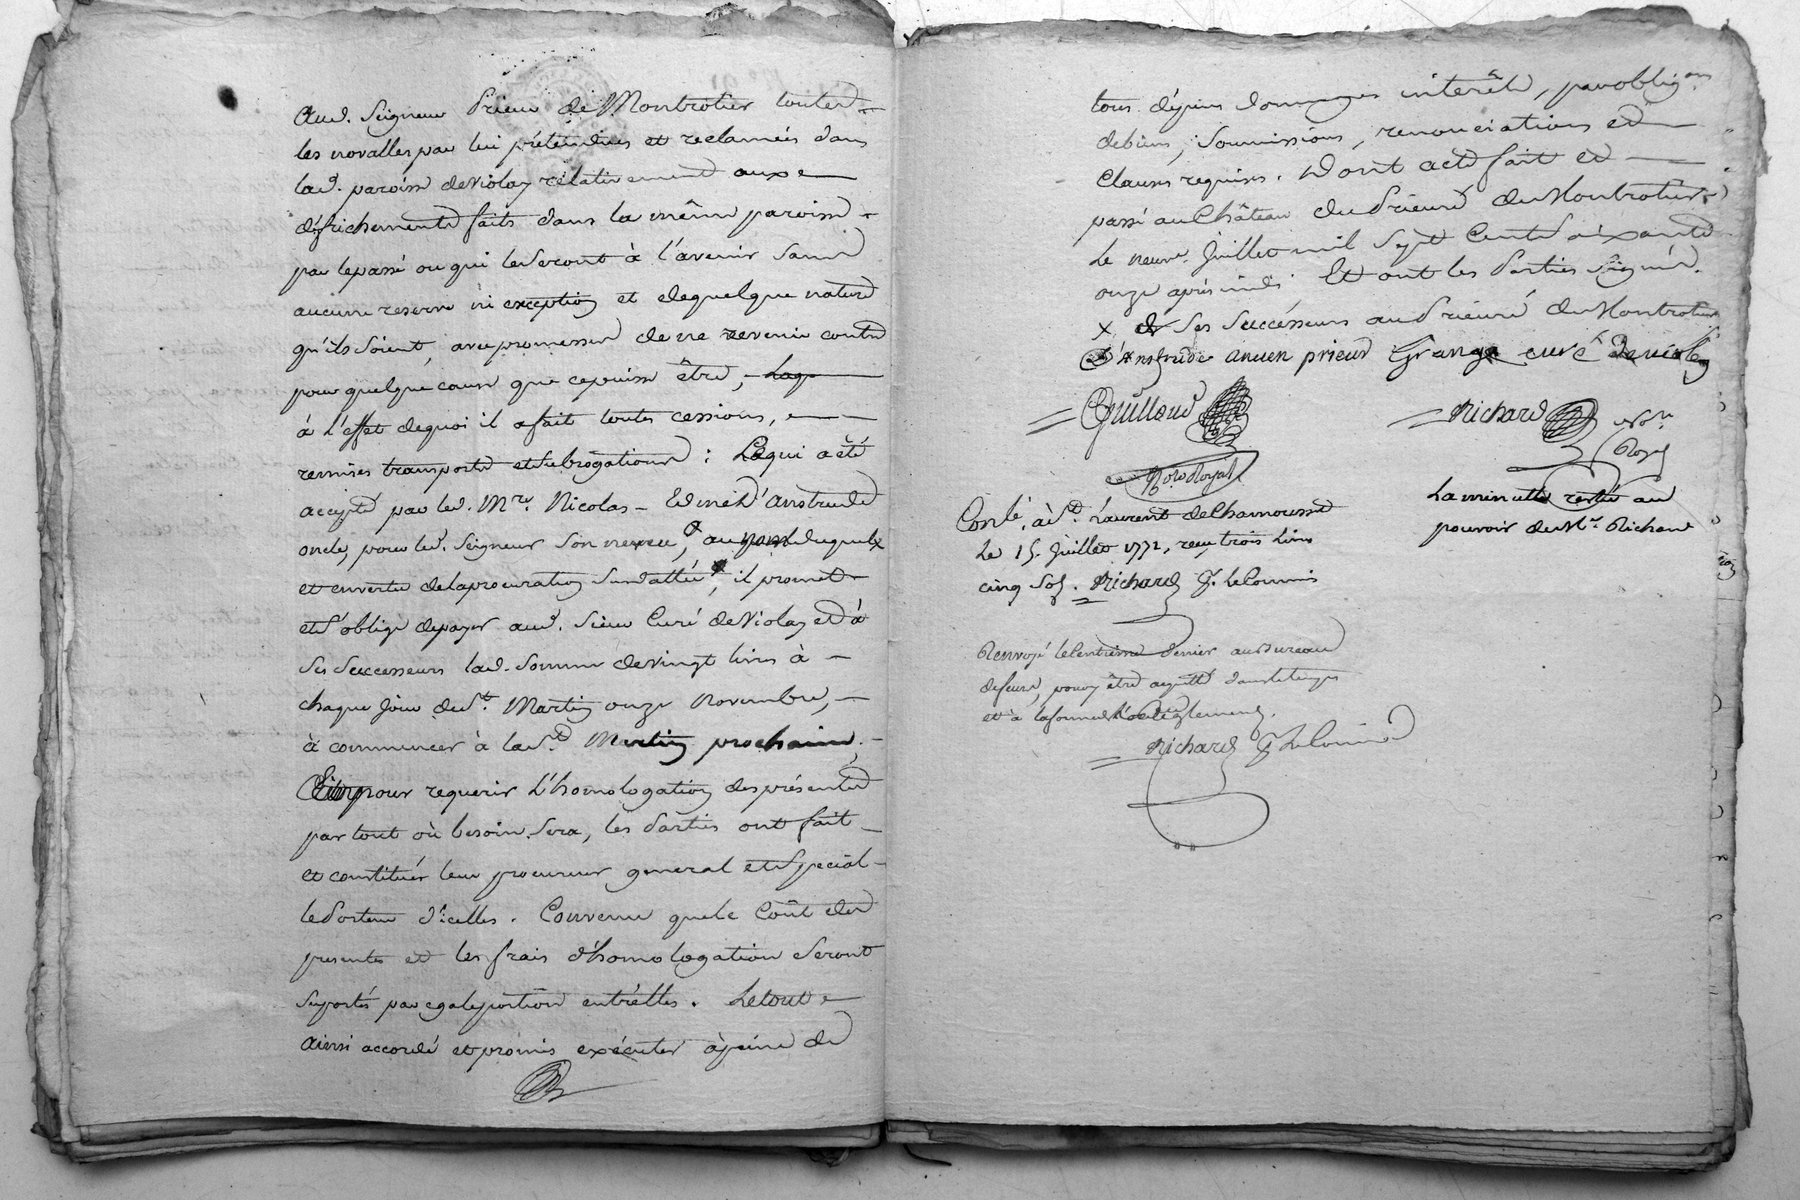 aud. Seigneur Prieur de Montrotier toutes
les novalles par lui prétendues et reclamées dans
lad. paroisse de Violay relativement aux
défrichements faits dans la même paroisse
par le passé ou qui le seront à l'avenir sans
aucune reserve ni exception et de quelque nature
qu'ils soient, avec promesse de ne revenir contre
pour quelque cause que ce puisse être,
à l'effet de quoi il a fait toutes cessions,
remises transports et subrogations : Ce qui a été
accepté par led. Mre. Nicolas - Edme d'Anstrude
oncle, pour led. Seigneur son neveu, au nom duquel x
et en vertu de la procuration susdattée, il promet
et s'oblige de payer aud. Sieur Curé de Violay et à
ses successeurs lad. somme de vingt livres à
chaque jour de St. Martin onze Novembre,
à commencer à la St. Martin prochaine.
Et pour requerir l'homologation des présentes
par tout où besoin sera, les parties ont fait
et constitué leur procureur general et special
le porteur d'icelles. Convenu que le Coût des
presentes et les frais d'homologation seront
suportés par egale portion entr'elles. Le tout
ainsi accordé et promis exécuter à peine de
tous dépens dommages interêts, par oblig.on
de biens, soumissions, renonciations et
clauses requises. Dont acte fait et
passé au Château du Prieuré de Montrotier
le neuf Juillet mil Sept Cents soixante
onze après midi. Et ont les parties signé.
x et ses Successeurs au Prieuré de Montrotier
D'Anstrude ancien prieur Grange curé de violay
Guilloud Richard Not.re
Royal
No.re Royal
La minute restée au
pouvoir de Me. Richard
Conlé. à St. Laurent de Chamousset
Le 15. Juillet 1771, reçu trois livres
cinq sols. Richard P. le Commis
Renvoyé le Centième denier au Bureau
de feurs, pour y être acquitté dans le temps
et à la forme du Reglement.
Richard P. le Commis